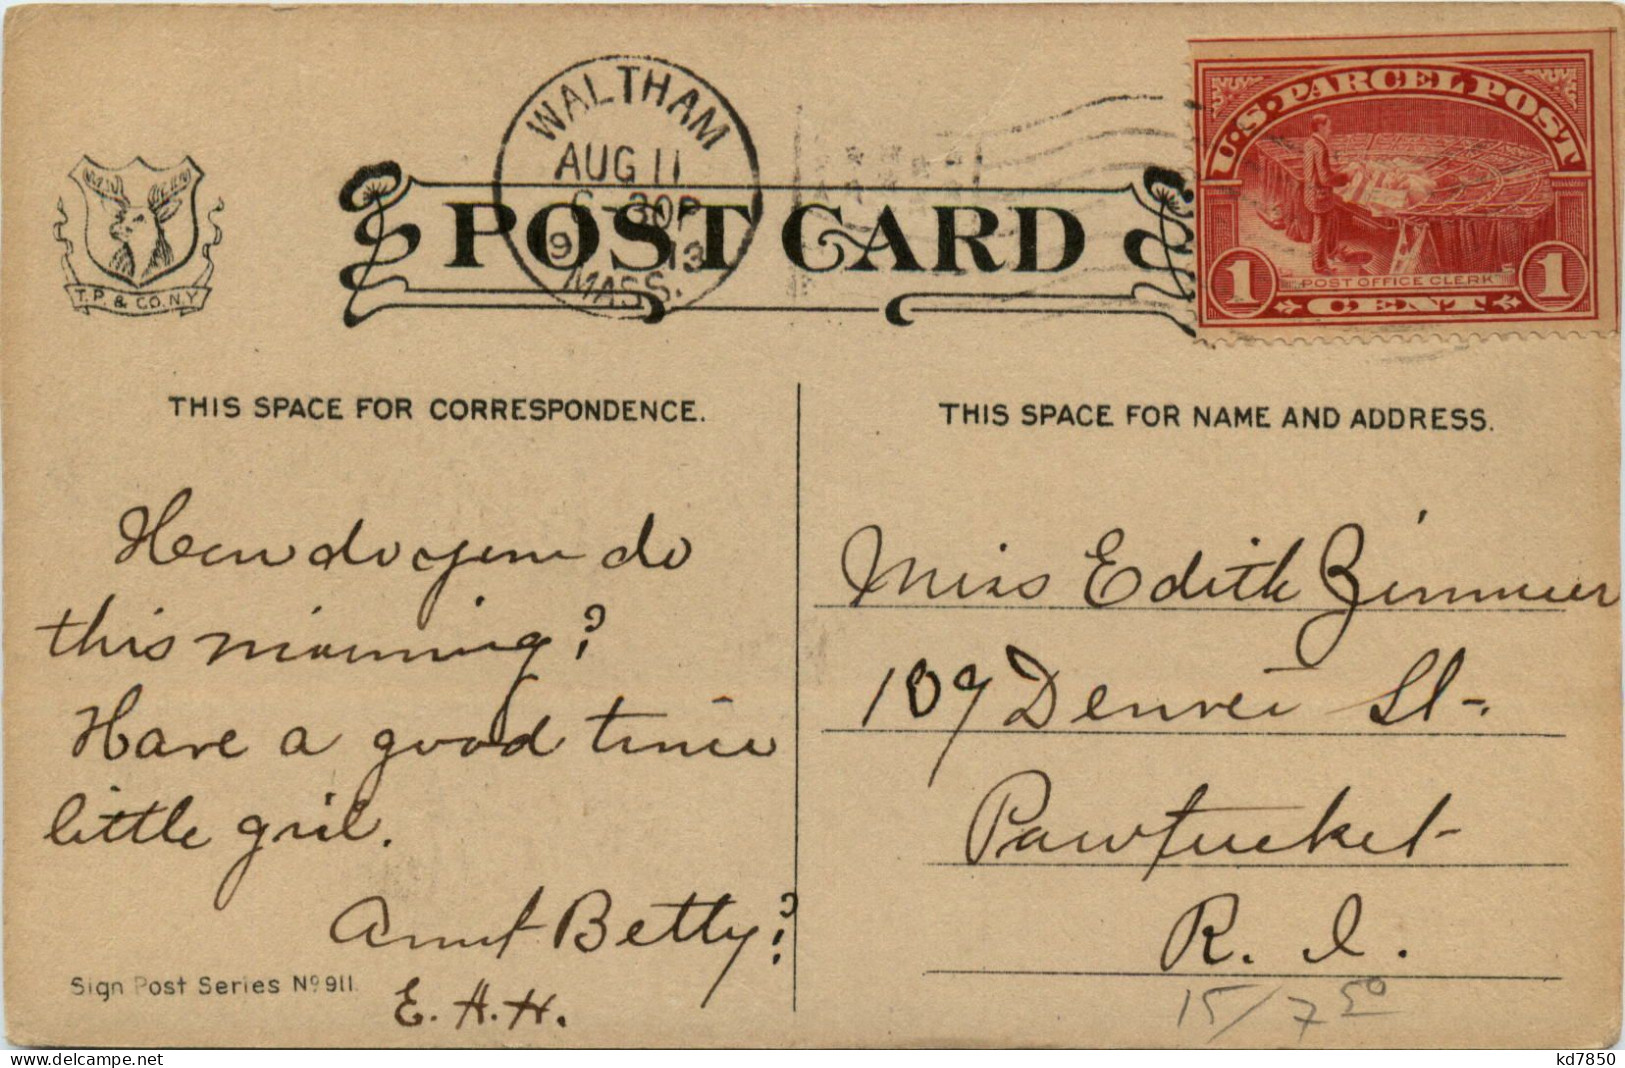 WALTHAM
AUG 11
6-30P
1913
MASS.
U.S. PARCEL POST
POST OFFICE CLERK
1 CENT 1
T.P. & CO. N.Y.
POST CARD
THIS SPACE FOR CORRESPONDENCE.
THIS SPACE FOR NAME AND ADDRESS.
How do you do
this morning?
Have a good time
little girl.
Aunt Betty?
E. H. H.
Sign Post Series No 911.
Miss Edith
109 Denver St.
Pawtucket
R. I.
15/7 50
kd7850